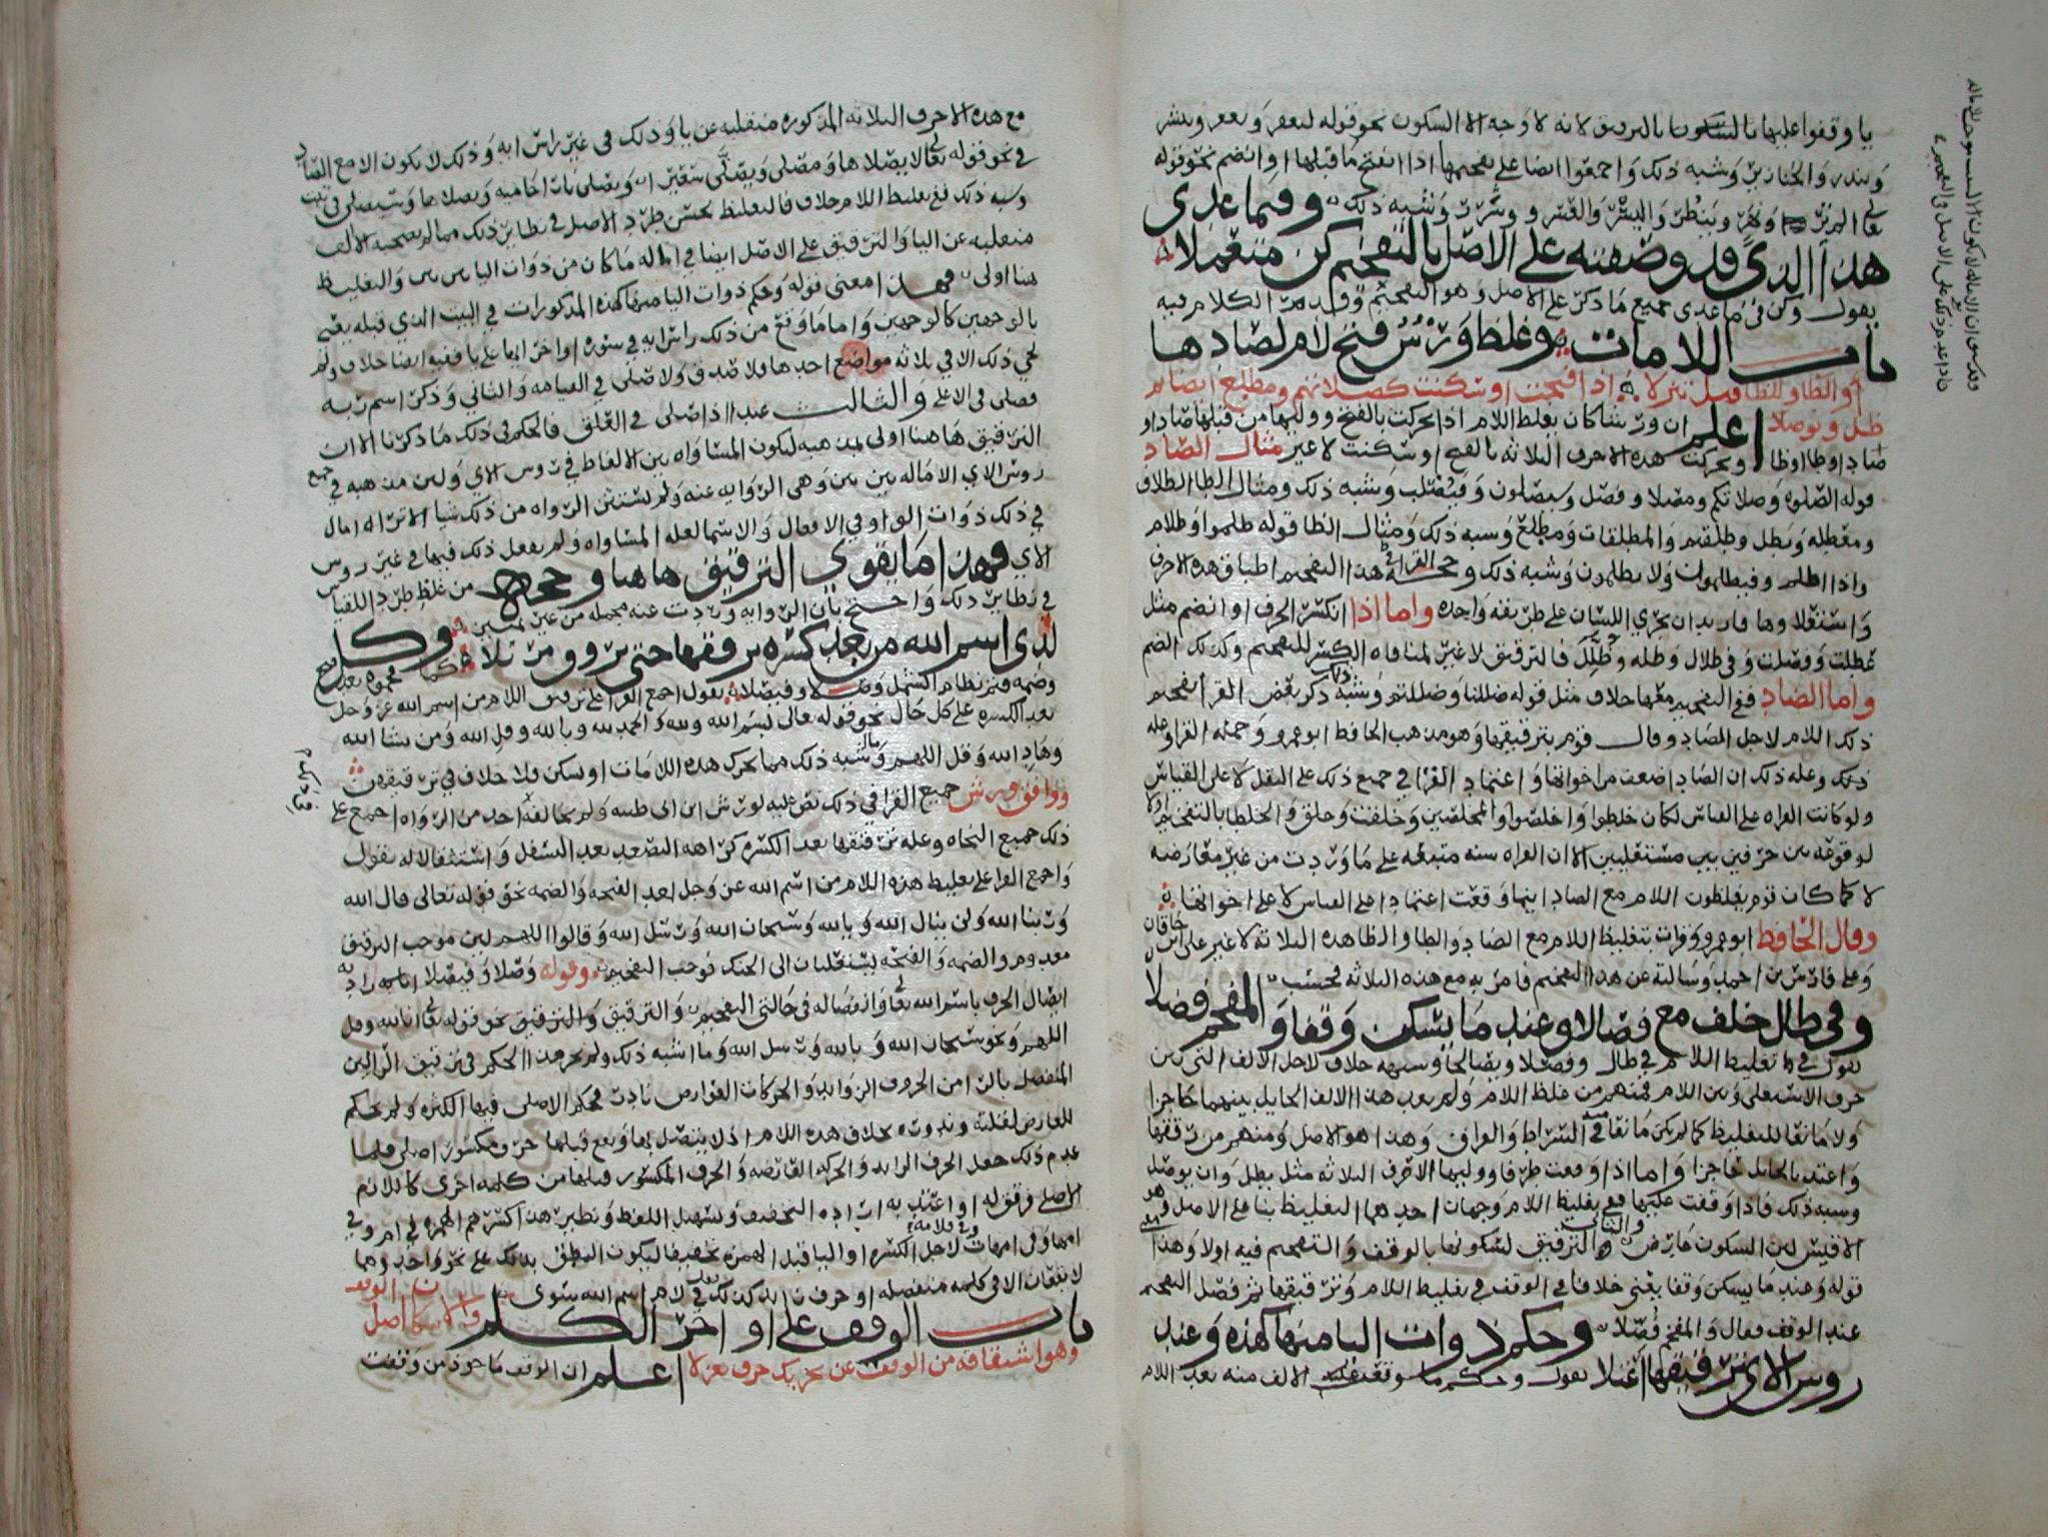 يا وقفوا عليها بالسكون بالترقيق لانه لا وجه الا السكون نحو قوله ليغفر ويغفر وينشر
ويندر والخنازير وشبه ذلك واجمعوا ايضا على تفخيمها اذا انفتح ما قبلها او انضم نحو قوله
وشبه ذلك وفيما عدى
هذا الذي قد وصفته على الاصل بالتفخيم كن متعملا
يقول وكن في ما عدى جميع ما ذكر على الاصل وهو التفخيم وقد مر الكلام فيه
باب اللامات وغلظ ورش فتح لام لصادها
او الطا او للظا قبل تنزلا اذا فتحت او سكنت كصلاتهم ومطلع ايضا ثم
ظل ويوصلا اعلم ان ورشا كان يغلظ اللام اذا تحركت بالفتح ووليها من قبلها صاد او
ضاد او طا او ظا وتحركت هذه الاحرف الثلاثة بالفتح او سكنت لا غير مثال الصاد
قوله الصلوة وصلاتكم ومصلا وفصل وسيصلون وفيصلب وشبه ذلك ومثال الطا الطلاق
ومعطلة وبطل وطلقتم والمطلقات ومطلع وشبه ذلك ومثال الظا قوله ظلموا وظلام
واذا اظلم وفيظلمون ولا يظلمون وشبه ذلك وحجة القرا في هذا التفخيم اطباق هذه الاحرف
واستعلاوها فاريد ان يجري اللسان على طريقة واحدة واما اذا انكسر الحرف او انضم مثل
عطلت وفصلت وفي ظلال وظلة وظلل فالترقيق لا غير لمنافاة الكسر للتفخيم وكذلك الضم
واما الضاد ففي التفخيم معها خلاف مثل قوله ضللنا وضللتم وشبه ذلك ذكر بعض القرا تفخيم
ذلك اللام لاجل الضاد وقال قوم بترقيقها وهو مذهب الحافظ ابو عمرو وجملة القرا وعلة
ذلك وعلة ذلك ان الضاد اضعف من اخواتها واعتماد القرا في جميع ذلك على النقل لا على القياس
ولو كانت القراه على القياس لكان خلطوا واخلصوا والمخلصين وخلفت وخلق والخلطا بالتفخيم اولا
لوقوعه بين حرفين مستعليين الا ان القراه سنة متبعة على ما وردت من غير معارضة
لا كما كان قوم يغلظون اللام مع الصاد اينما وقعت اعتمادا على القياس لا على اخواتها
وقال الحافظ ابو عمرو وقرات بتغليظ اللام مع الصاد والطا والظا هذه الثلاثة لا غير على ابن خاقان
وعلى فارس بن احمد وسالته عن هذا التفخيم فامر به مع هذه الثلاثة فحسب
وفي طال خلف مع فصالا وعند ما يسكن وقفا والمفخم فضلا
يقول في تغليظ اللام في طال وفصلا ويصالحا وشبهه خلاف لاجل الالف التي بين
حرف الاستعلى وبين اللام فمنهم من غلظ اللام ولم يعد هذا الالف الحايل بينهما حاجزا
ولا مانعا للتغليظ كما لم يكن مانعا في السراط والفراق وهذا هو الاصل ومنهم من رققها
واعتد بالحايل حاجزا واما اذا وقعت طرفا ووليها الاحرف الثلاثة مثل بطل وان يوصل
وشبه ذلك فاذا وقفت عليها ففي تغليظ اللام وجهان احدهما التغليظ بنا على الاصل وهو
الاقيس لان السكون عارض والثاني الترقيق لسكونها بالوقف والتفخيم فيه اولا وهذا
قوله وعند ما يسكن وقفا يعني خلافا في الوقف في تغليظ اللام وترقيقها ثم فضل التفخيم
عند الوقف فقال والمفخم فضلا وحكم ذوات اليا منها كهذه وعند
رووس الاي ترقيقها اعتلا يقول وحكم ما وقعت الالف منه بعد اللام
مع هذه الاحرف الثلاثة المذكورة منقلبة عن يا وذلك في غير راس اية وذلك لا يكون الا مع الصاد
في نحو قوله تعالى لا يصلاها ومصلى ويصلى سعيرا ويصلى نارا حامية ويصلاها وسيصلى في تبت
وشبه ذلك ففي تغليظ اللام خلاف فالتغليظ بحسن طرد الاصل في نظاير ذلك مما لم يصحبه الالف
منقلبة عن اليا والترقيق على الاصل ايضا في امالة ما كان من ذوات اليا بين بين والتغليظ
هنا اولى فهذا معنى قوله وحكم ذوات اليا منها كهذه المذكورات في البيت الذي قبله يعني
بالوجهين كالوجهين واما ما وقع من ذلك راس اية في سورة اواخر ايها على يا ففيه ايضا خلاف ولم
يجي ذلك الا في ثلاثة مواضع احدها فلا صدق ولا صلى في القيامة والثاني وذكر اسم ربه
فصلى في الاعلى والثالث عبدا اذا صلى في العلق فالحكم في ذلك ما ذكرنا الا ان
الترقيق هاهنا اولى بمذهبه ليكون المساواه بين الالفاظ في رووس الاي ولان مذهبه في جميع
رووس الاي الامالة بين بين وهي الرواية عنه ولم يستثن الرواه من ذلك شيا الا تراه امال
في ذلك ذوات الواو في الافعال والاسما لعلة المساواه ولم يفعل ذلك فيها في غير رووس
الاي فهذا ما يقوي الترقيق هاهنا وحجة من غلظ طرد اللقيا
في نظاير ذلك واحتج بان الرواية وردت عنه مجملة من غير تبيين وكل
لذي اسم الله من بعد كسرة يرققها حتى يروق مرتلا كما فخموه بعد فتح
وضمة فتم نظام الشمل وصلا وفيصلا يقول اجمع القرا على ترقيق اللام من اسم الله عز وجل
بعد الكسرة على كل حال نحو قوله تعالى بسم الله ولله والحمد لله وبالله وقل الله ومن يشا الله
وهاد الله وقل اللهم وما شبه ذلك مما تحرك هذه اللامات او سكن فلا خلاف في ترقيقهن
ووافق ورش جميع القرا في ذلك نص عليه لورش ابن ابي طيبة ولم يخالفه احد من الرواه اجمع على
ذلك جميع النحاه وعلة ترقيقها بعد الكسرة كراهة التصعد بعد التسفل واستثقالا له يقول
واجمع القرا على تغليظ هذه اللام من اسم الله عز وجل بعد الفتحة والضمة نحو قوله تعالى قال الله
وربنا الله ولن ينال الله وتالله وسبحان الله ورسل الله وقالوا اللهم لان موجب الترقيق
معدوم والضمة والفتحة يستعليان الى الحنك فوجب التفخيم وقوله وصلا وفيصلا اراد به
ايصال الحرف باسم الله تعالى وانفصاله في حالتي التفخيم والترقيق والترقيق نحو قوله تعالى انا لله وقل
اللهم ونحو سبحان الله وبالله ورسل الله وما اشبه ذلك ولم نجر هذا الحكم في ترقيق الرا لان
المنفصل بالرا من الحروف الزوايد والحركات العوارض نادت فحكم الاصلي فيها الكثرة ولم يحكم
للعارض لقلته وندوره بخلاف هذه اللام اذ لا ينفصل بها ويقع قبلها حرف مكسور اصلي فلما
عدم ذلك جعل الحرف الزايد والحركة العارضة والحرف المكسور قبلها من كلمة اخرى كاللازم
الاصلي فرقق له او اعتد به ارادة التخفيف وتسهيل اللفظ ونظير هذا كسرهم الهمزة في ام وفي
امها وفي امهات لاجل الكسرة او اليا قبل الهمزة تخفيفا ليكون النطق بذلك على نحو واحد وهما
لا يقعان الا في كلمة منفصلة او حرف زايد كذلك في لام اسم الله سوى
باب الوقف على اواخر الكلم والاسكان اصل الوقف
وهو اشتقاقه من الوقف عن تحريك حرف تعزلا اعلم ان الوقف ماخوذ من وقفت